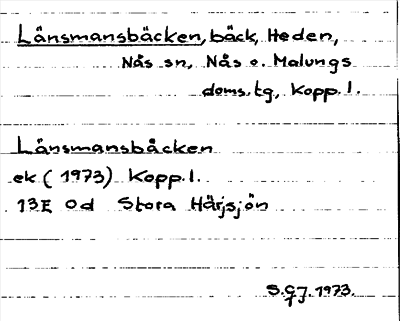 Länsmansbäcken, bäck, Heden,
Nås sn, Nås o. Malungs
doms.tg, Kopp.l.
Länsmansbäcken
ek (1973) Kopp.l.
13E 0d Stora Härjsjön
1973.